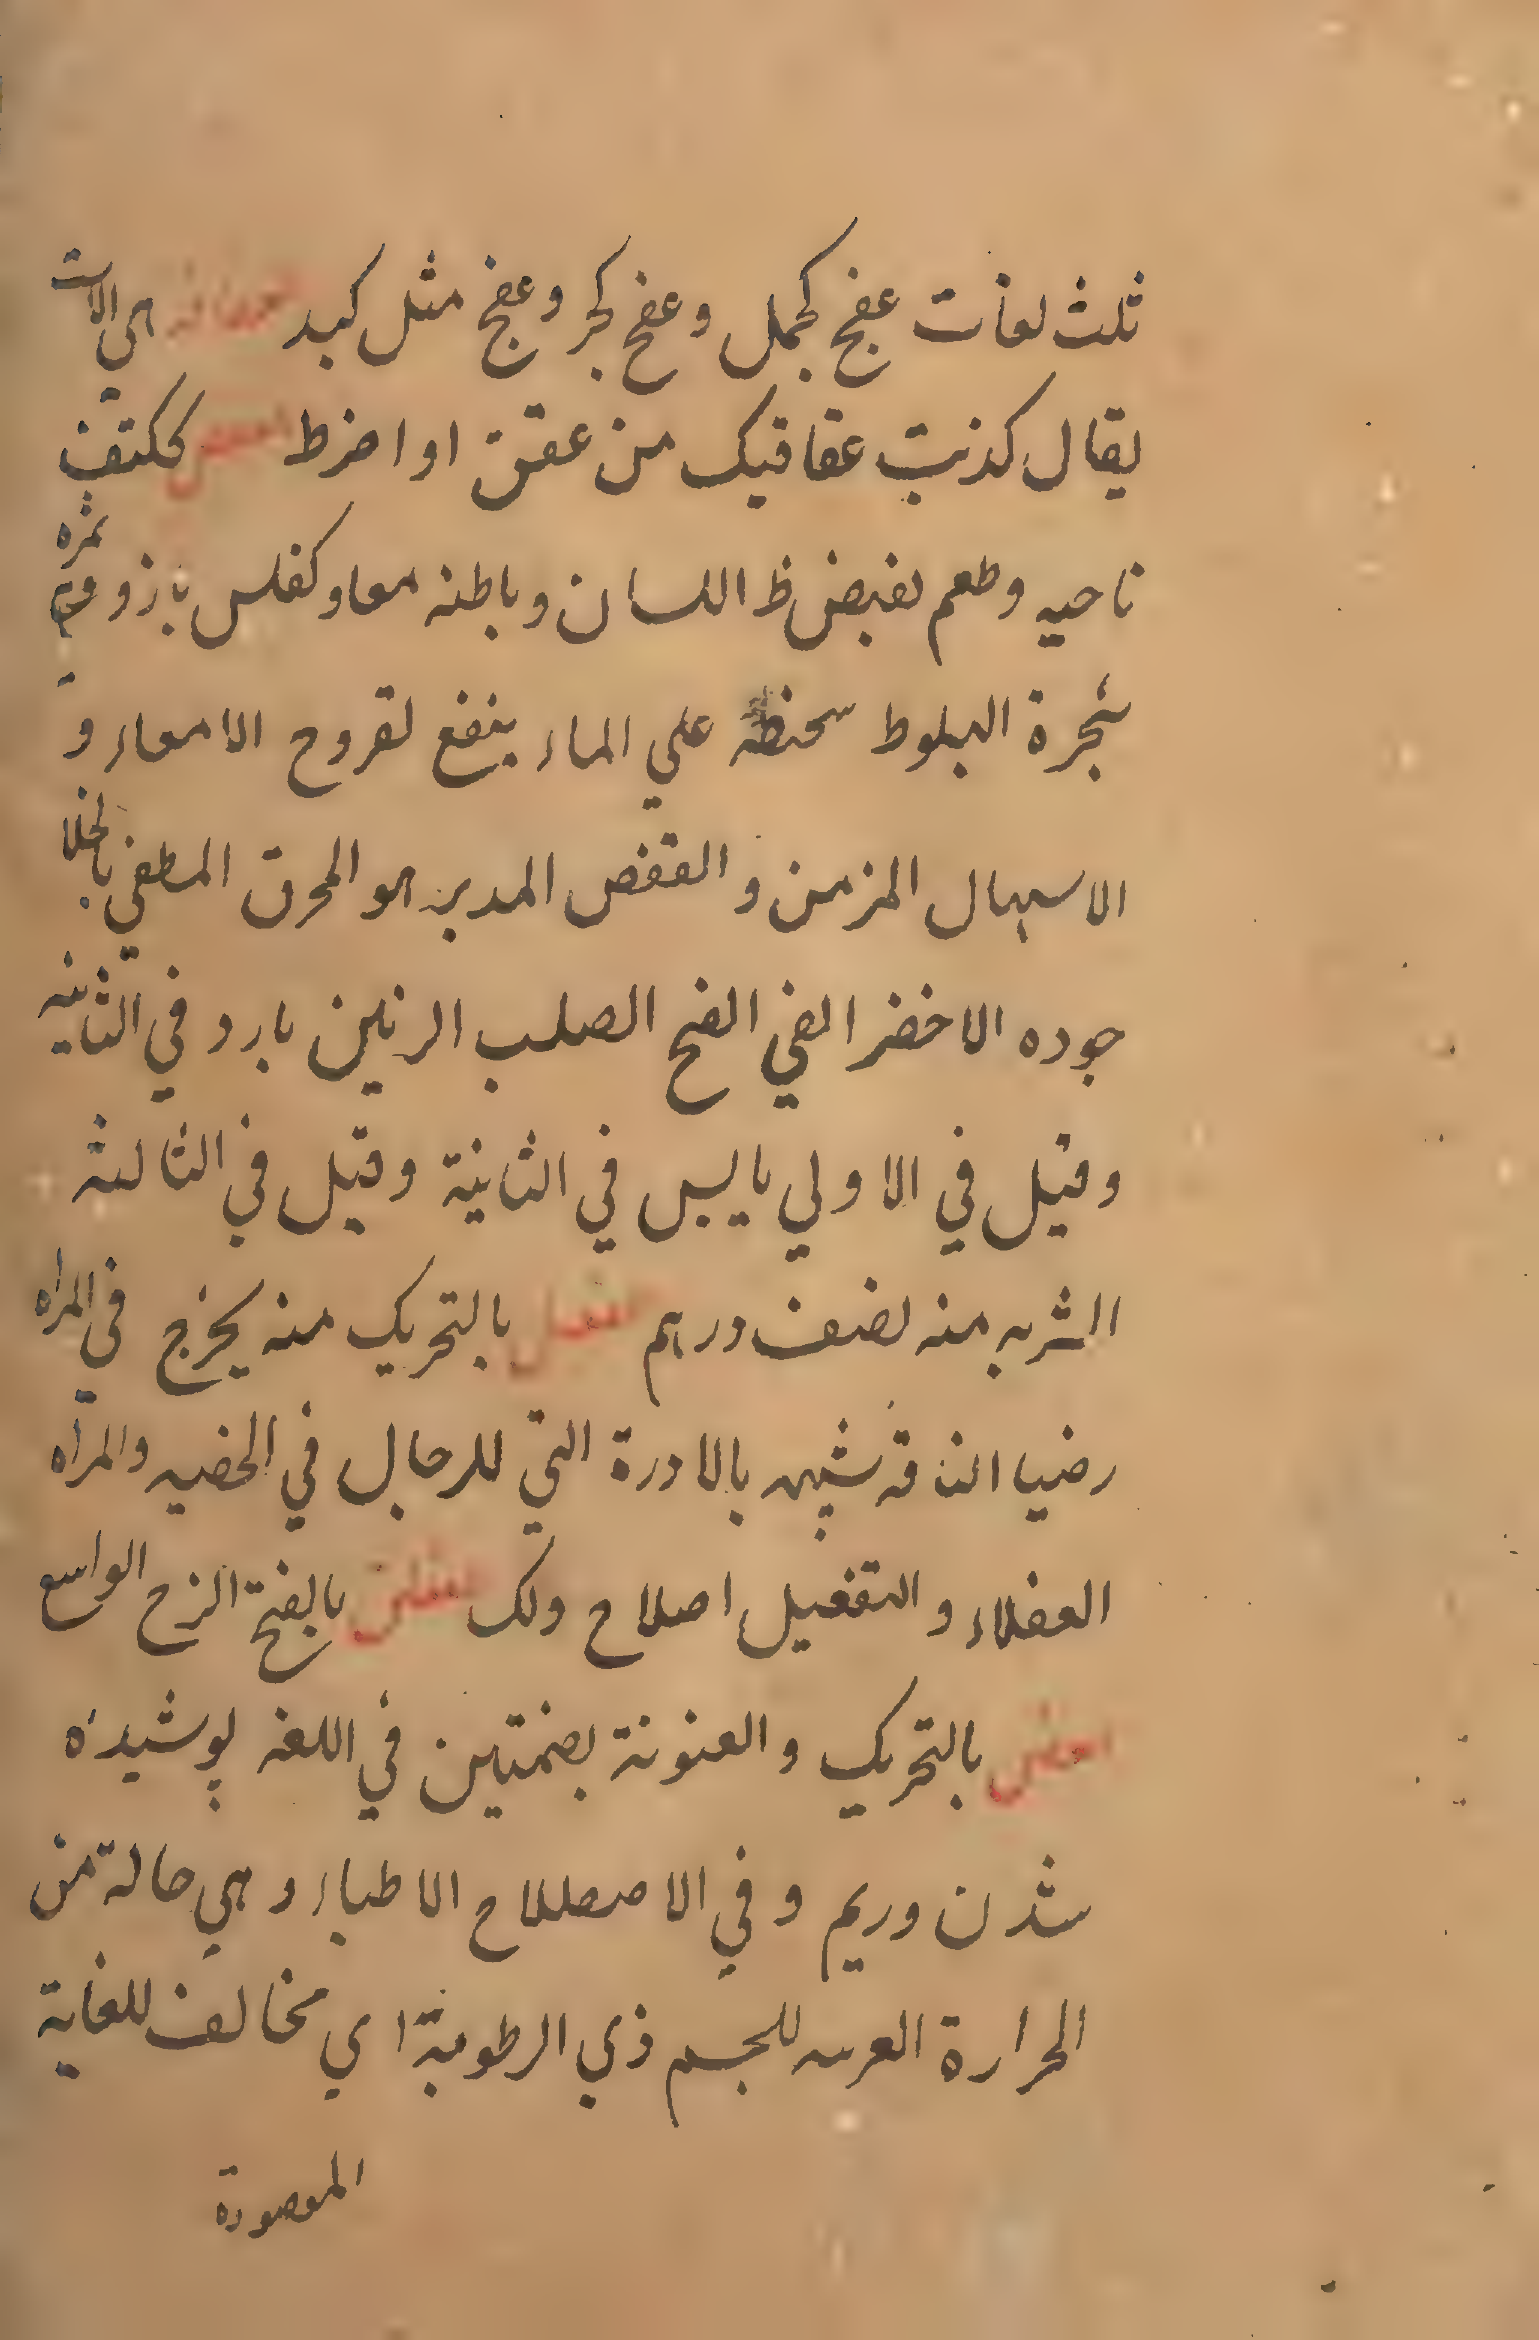 ثلث لغات عفج كجمل وعفج كحجر وعفج مثل كبد عفاقه هي الاست
يقال كذبت عفاقيك من عفق او اضرط العفص ككتف
ناحيه وطعم بقبض ظ اللسان وباطنه معا وكفلس بازو وهي ثمره
شجرة البلوط على الماء ينفع لقروح الامعاء و
الاسهال المزمن والعفص المدبر هو المحرق المطفي بالخل
جوده الاخضر الفج الصلب الرنين بارد في الثانيه
وقيل في الاولي يابس في الثانية وقيل في الثالثه
الشربه منه نصف درهم عفل بالتحريك منه يخرج في المراه
وحيا الناقه شبيه بالادرة التي للرجال في الخصيه والمرآه
العفلاء والتفعيل اصلاح ذلك عفلق بالفتح الواسع
العفن بالتحريك والعفونة بضمتين في اللغه پوشيده
شدن وريم وفي الاصطلاح الاطباء وهي حالة من
الحرارة الغريبه للجسم ذي الرطوبة اي مخالف للغاية
المقصودة